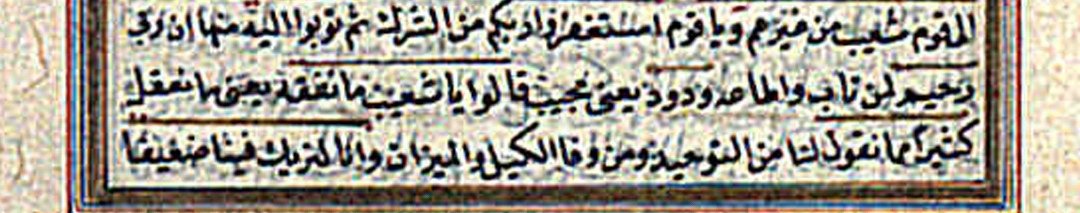 القوم شعيب من غيرهم ويا قوم استغفروا ربكم من الشرك ثم توبوا اليه منها ان ربي
رحيم لمن تاب واطاعه ودود يعني مجيب قالوا يا شعيب ما نفقه يعنى ما نعقل
كثيرا مما تقول لنا من التوحيد ومن وفا الكيل والميزان وانا لنريك فينا ضعيفا